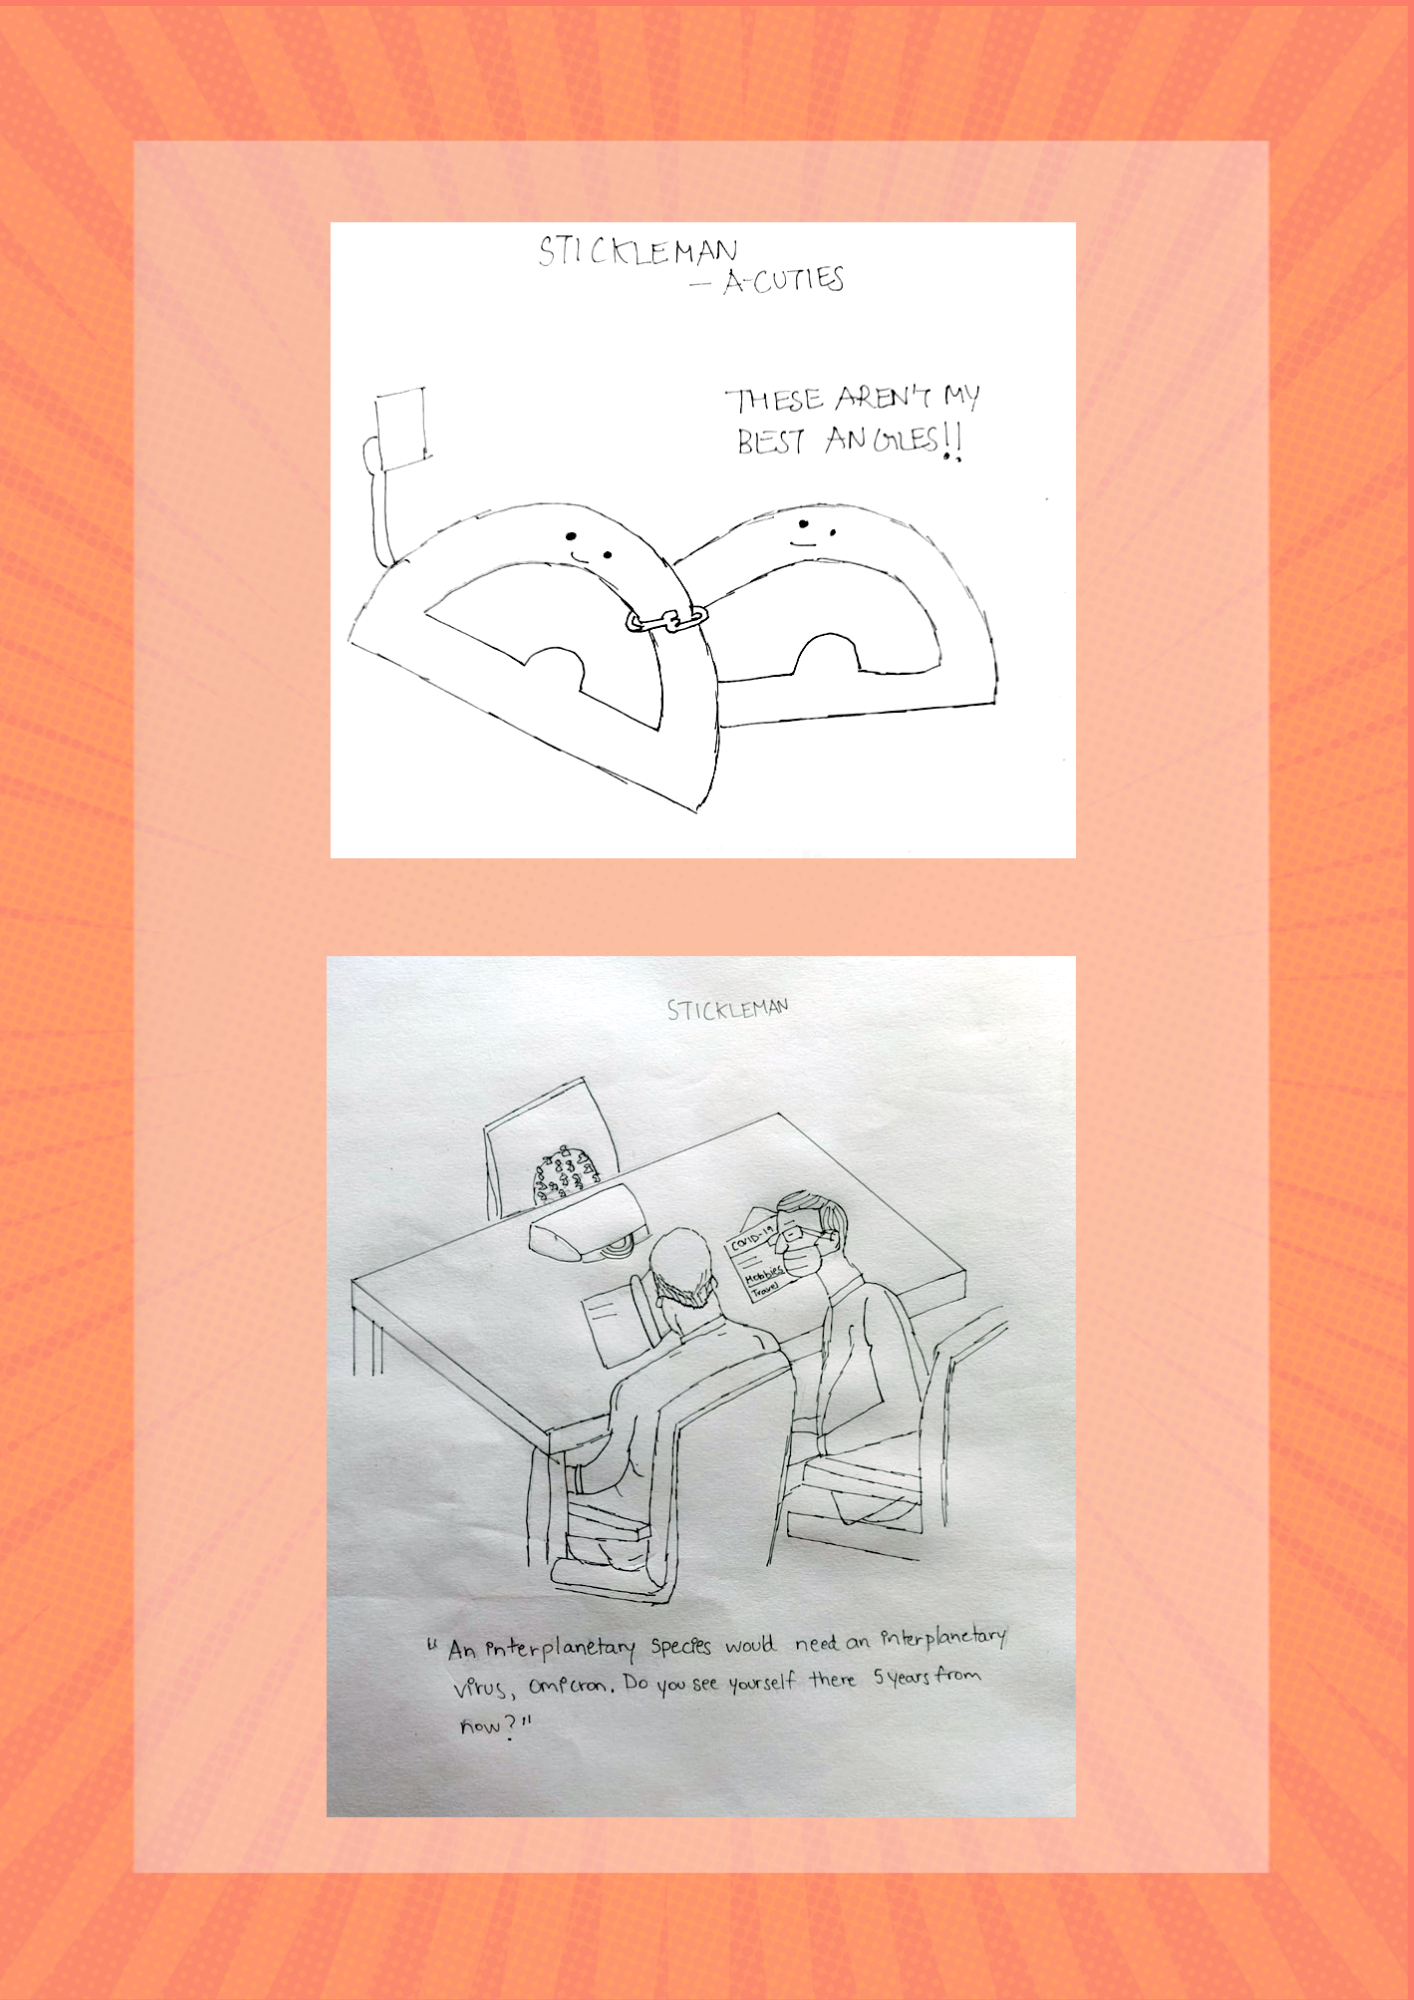 STICKLEMAN
— A-CUTIES
THESE AREN'T MY
BEST ANGLES!!
STICKLEMAN
COVID-19
Hobbies
Travel
" An interplanetary species would need an interplanetary
virus, omicron. Do you see yourself there 5 years from
now?"